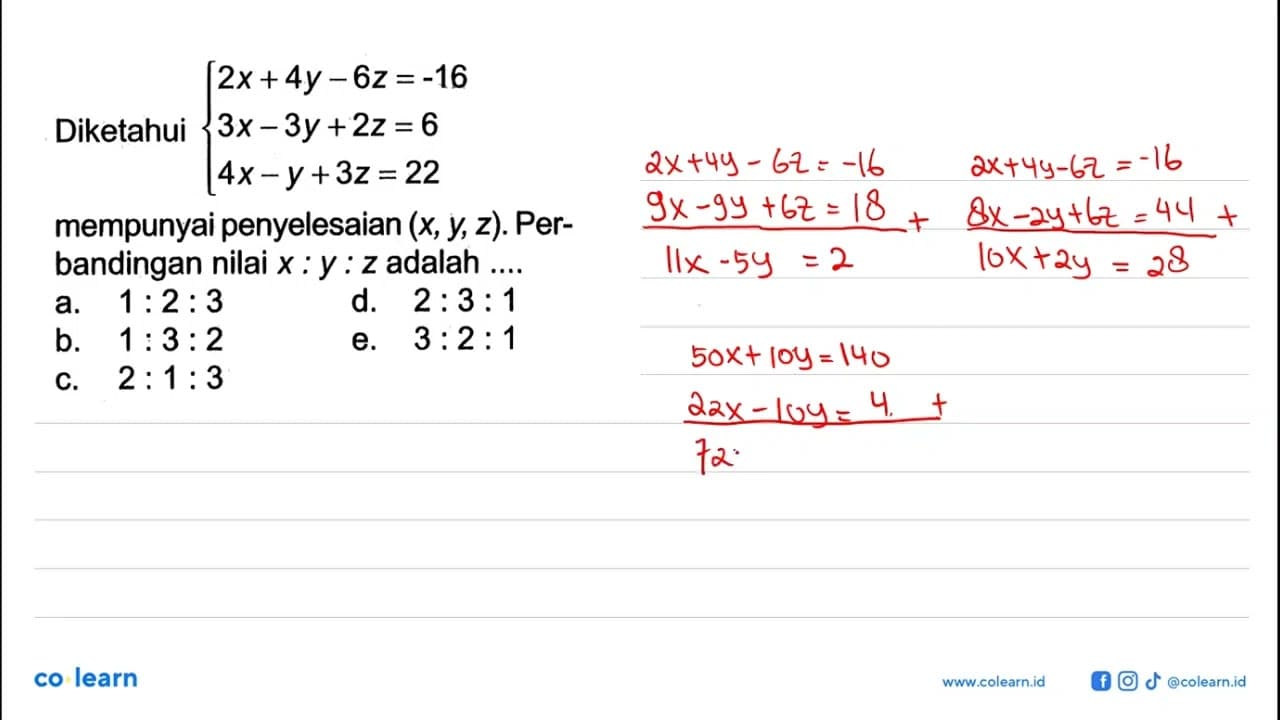 Diketahui
2x + 4y – 6z = -16
3x – 3y + 2z = 6
4x – y + 3z = 22
mempunyai penyelesaian (x, y, z). Per-
bandingan nilai x : y : z adalah ....
a. 1 : 2 : 3 d. 2 : 3 : 1
b. 1 : 3 : 2 e. 3 : 2 : 1
c. 2 : 1 : 3
2x+4y - 6z = -16
9x -9y +6z = 18 +
11x -5y = 2
2x+4y-6z = -16
8x -2y+6z = 44 +
10x+2y = 28
50x+10y=140
22x-10y= 4. +
72
co learn
www.colearn.id
@colearn.id